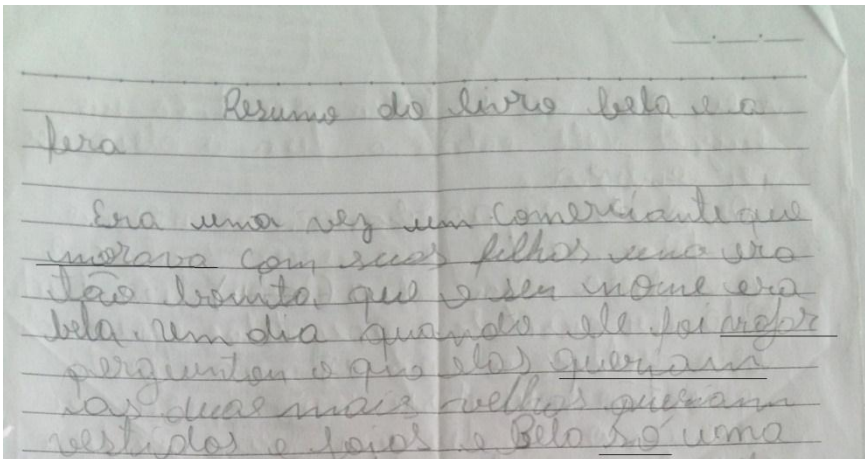 Resumo do livro bela e a
fera
Era uma vez um comerciante que
morava com suas filhas uma era
tão bonita, que o seu nome era
bela. um dia quando ele foi
perguntou o que elas queriam
as duas mais velhas queriam
vestidos e joias e Bela só uma